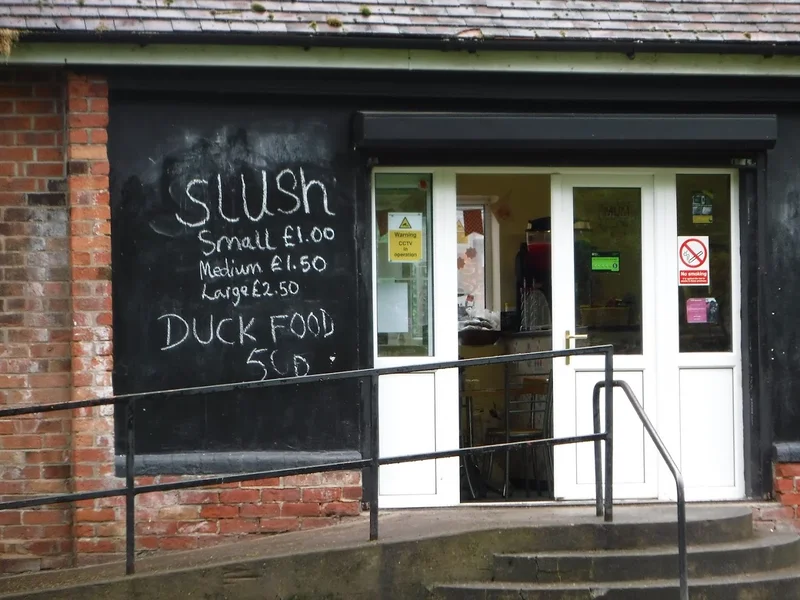 SLUSH
Small £1.00
Medium £1.50
Large £2.50
DUCK FOOD
50p
Warning
CCTV
in
operation
No smoking